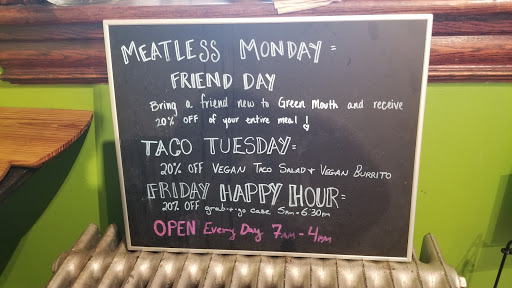 MEATLESS MONDAY=
FRIEND DAY
Bring a friend new to Green Mouth and receive
20% OFF of your entire meal!
TACO TUESDAY=
20% OFF VEGAN TACO SALAD + VEGAN BURRITO
FRIDAY HAPPY HOUR=
20% OFF grab-n-go case 5pm-6:30pm
OPEN Every Day 7AM-4PM